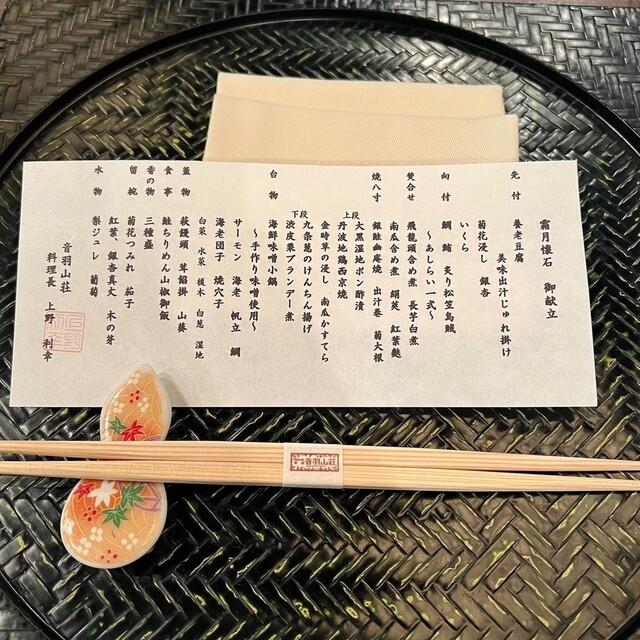 霜月懐石 御献立
先付 養老豆腐
美味出汁じゅれ掛け
菊花浸し 銀杏
いくら
向付 鯛 鮪 炙り松笠烏賊
～あしらい一式～
焚合せ 飛龍頭含め煮 長芋白煮
南瓜含め煮 絹莢 紅葉麩
焼八寸 銀鮭幽庵焼 出汁巻 菊大根
上段 大黒湿地ポン酢漬
丹波地鶏西京焼
金時草の浸し 南瓜かすてら
九条葱のけんちん揚げ
下段 渋皮栗ブランデー煮
台物 海鮮味噌小鍋
～手作り味噌使用～
サーモン 海老 帆立 鯛
海老団子 焼穴子
白菜 水菜 榎木 白葱 湿地
蓋物 萩饅頭 茸餡掛 山葵
食事 鮭ちりめん山椒御飯
香の物 三種盛
留椀 菊花つみれ 茄子
紅葉、銀杏真丈 木の芽
水物 梨ジュレ 葡萄
音羽山荘
料理長 上野 利幸
音羽山荘